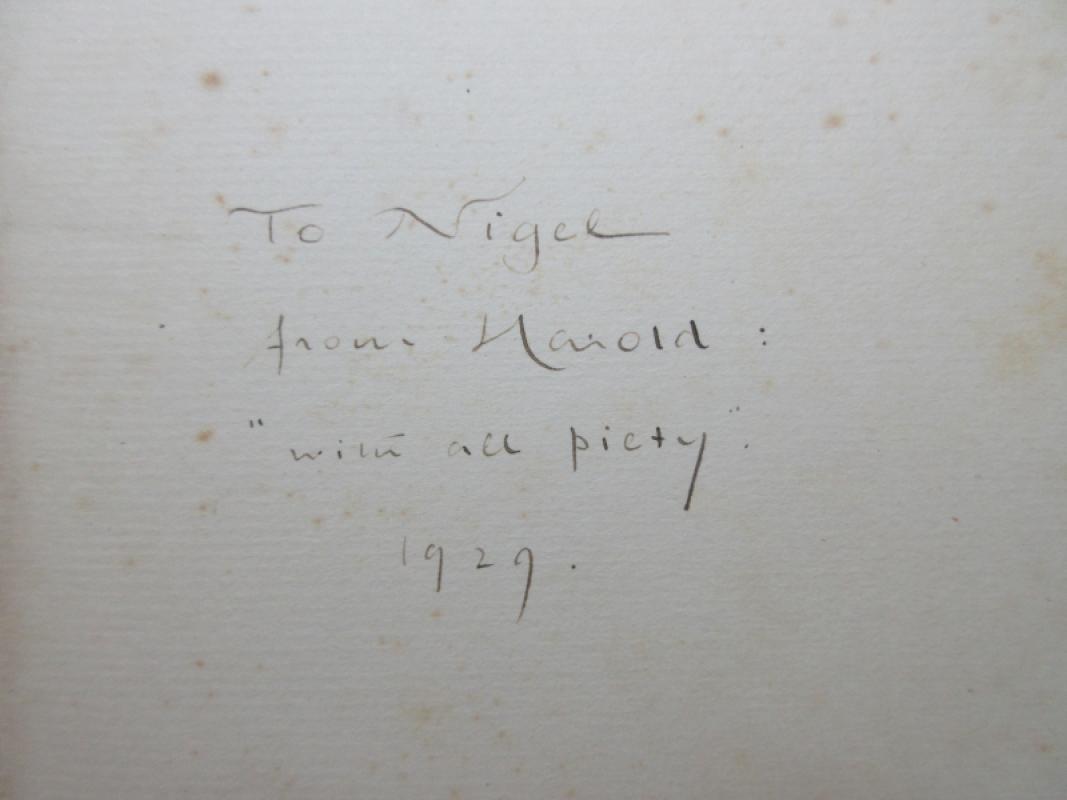 To Nigel
from Harold :
"with all piety".
1929.